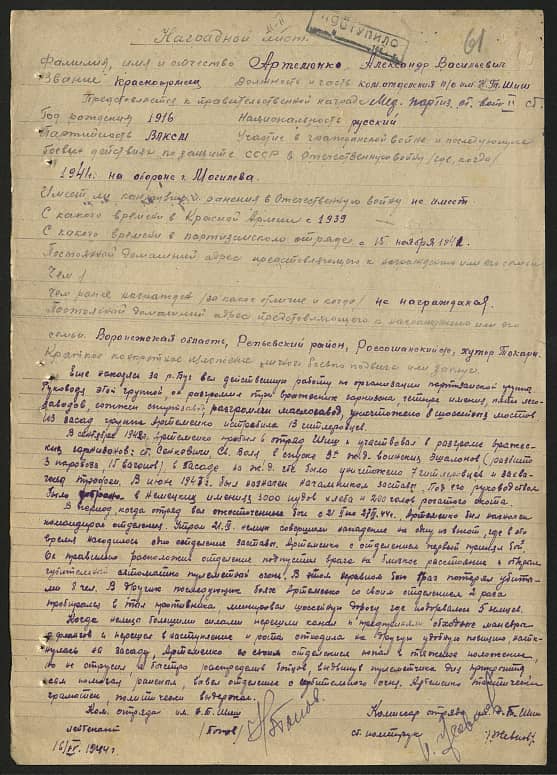 Наградной лист.
ПОСТУПИЛО
61
Фамилия, имя и отчество Артеменко Александр Васильевич
Звание Красноармеец Должность и часть ком. отделения п/о им. Н.Т. Шиш
Представляется к правительственной награде Мед. Партиз. от. войн II ст.
Год рождения 1916 Национальность русский
Партийность ВЛКСМ Участие в гражданской войне и последующих
боевых действиях по защите СССР в Отечественную войну /где, когда/
1941г. на обороне г. Могилева.
Имеет ли ранения в Отечественную войну не имеет
С какого времени в Красной Армии с 1939
С какого времени в партизанском отряде с 15 ноября
Постоянный домашний адрес представляемого к награждению или его семьи
Чем /
Чем ранее награжден /за какое отличие и когда/ не награждался.
Постоянный домашний адрес представляемого к награждению или его
семьи. Воронежская область, Репьевский район, хутор
Краткое конкретное изложение личного боевого подвига или заслуг.
Еще находясь за р. Буг вел действенную работу по организации партизанской группы.
Руководя этой группой, он разгромил три вражеских гарнизона, четыре имения, пять лесо-
заводов, разгромлен маслозавод, уничтожено 8 шоссейных мостов
Из засад группа Артеменко истребила 13 гитлеровцев.
В сентябре Артеменко прибыл в отряд Шиш и участвовал в разгроме вражес-
ких гарнизонов: ст. Св. Воля, в спуске 3х ж.д. воинских эшелонов (разбито
3 паровоза 15 вагонов) в засаде на ж.д. где было уничтожено 7 гитлеровцев и захва-
чены трофеи. В июне был назначен начальником заставы. Под его руководством
было добыто в немецких имениях 3000 пудов хлеба и 200 голов рогатого скота.
В период, когда отряд вел ожесточенные бои с 21 по Артеменко был назначен
командиром отделения. Утром немцы совершили нападение на одну из высот, где в это
время находилось его отделение заставы. Артеменко с отделением первый принял бой.
Он правильно расположил отделение подпустил врага на близкое расстояние и открыл
губительный автоматно пулеметный огонь. В этом неравном бою враг потерял убиты-
ми 8 чел. В других последующих боях Артеменко со своим отделением 2 раза
пробирался в тыл противника, минировал шоссейную дорогу где подорвалось 5 немцев.
Когда немцы большими силами перешли канал и предприняли обходные маневры
с флангов и перешли в наступление и рота отходила на другую удобную позицию натк-
нулась на засаду, Артеменко со своим отделением попал в тяжелое положение,
но не струсил и быстро распределив бойцов, выдвинув пулеметчика
сам помогал раненым, вывел отделение с губительного огня. Артеменко тактически
грамотен, политически выдержан.
Ком. отряда им. Н.Т. Шиш Комиссар отряда им. Н.Т. Шиш
лейтенант /Попов/ ст. политрук
16/IV. 1944г.